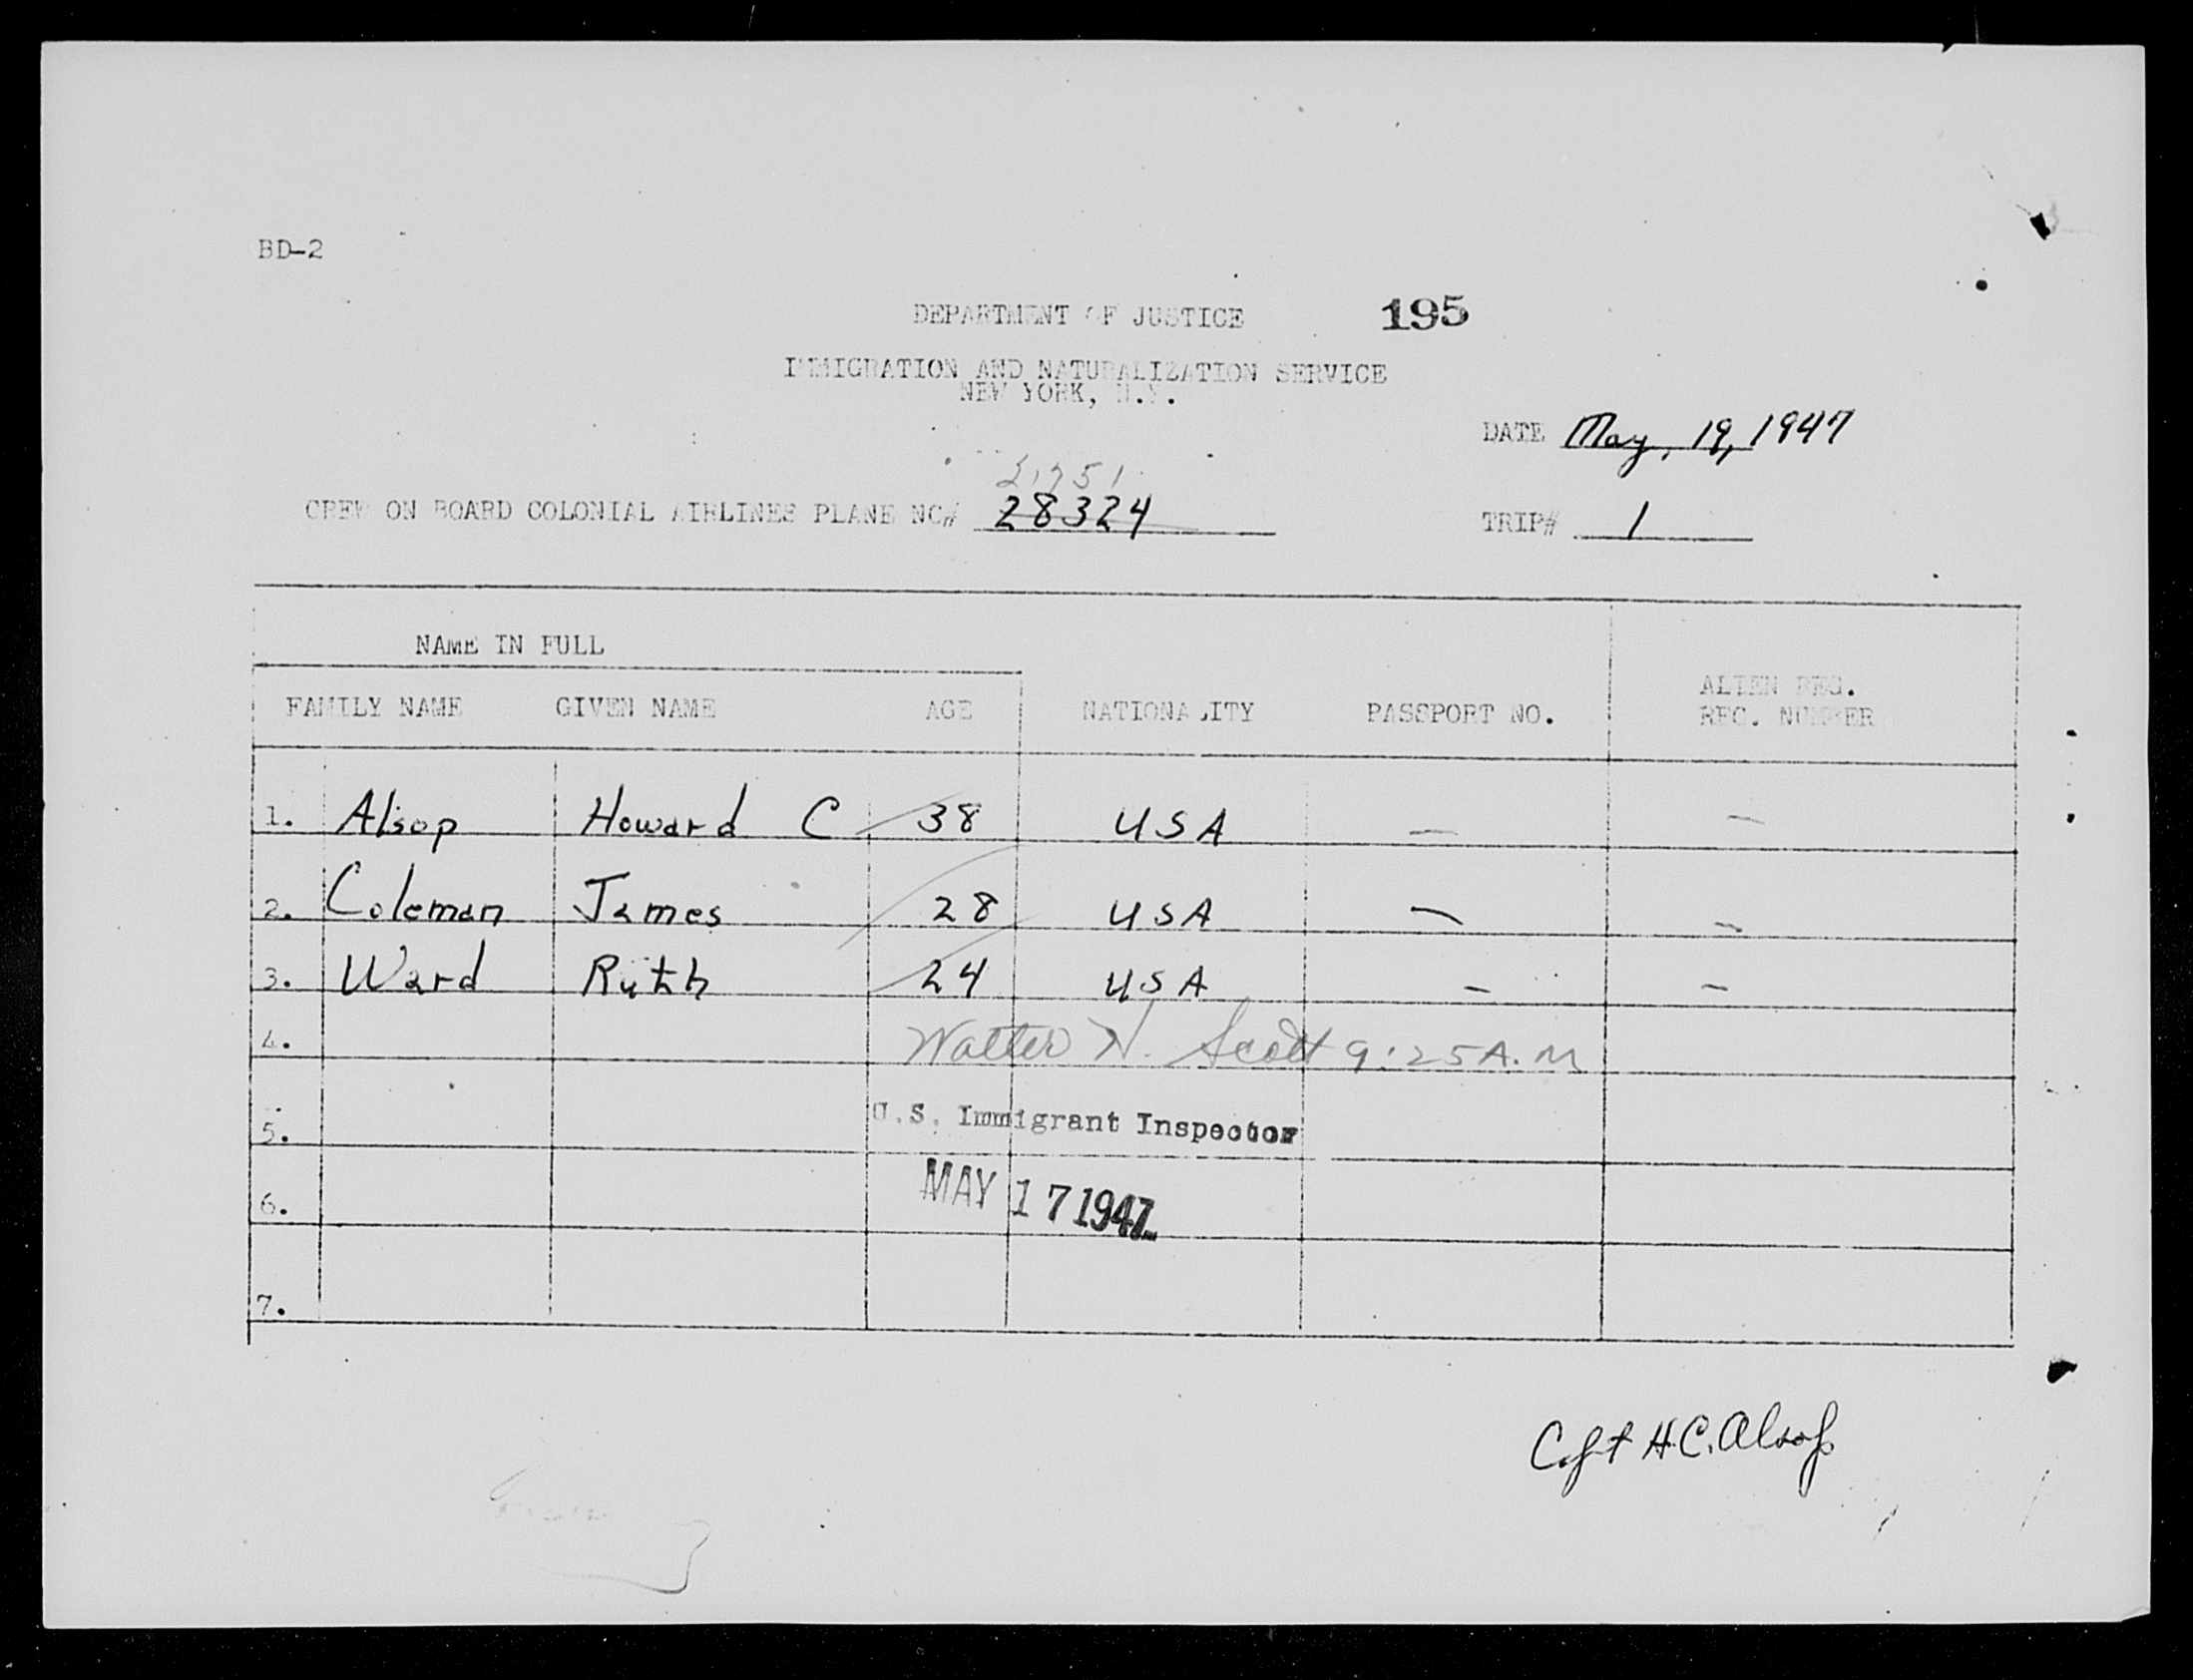 BD-2
DEPARTMENT OF JUSTICE 195
IMMIGRATION AND NATURALIZATION SERVICE
NEW YORK, N.Y.
DATE May, 19, 1947
CREW ON BOARD COLONIAL AIRLINES PLANE NO# 28324
TRIP# 1
NAME IN FULL
FAMILY NAME GIVEN NAME AGE NATIONALITY PASSPORT NO. ALIEN REG. REC. NUMBER
1. Alsop Howard C 38 USA — —
2. Coleman James 28 USA — —
3. Ward Ruth 24 USA — —
4. Walter N. Scott 9:25 A.M
5. U.S. Immigrant Inspector
6. MAY 17 1947
7.
Capt H.C. Alsop